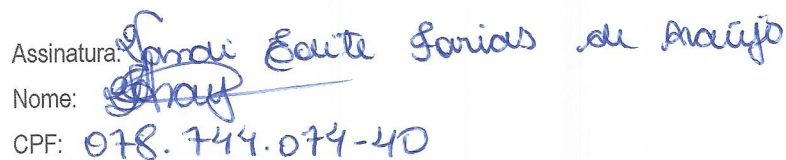 Assinatura: Edite Farias de Araújo
Nome:
CPF: 078.744.074-40